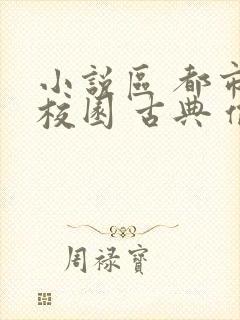 小說區 都市
校園 古典
周祿寶